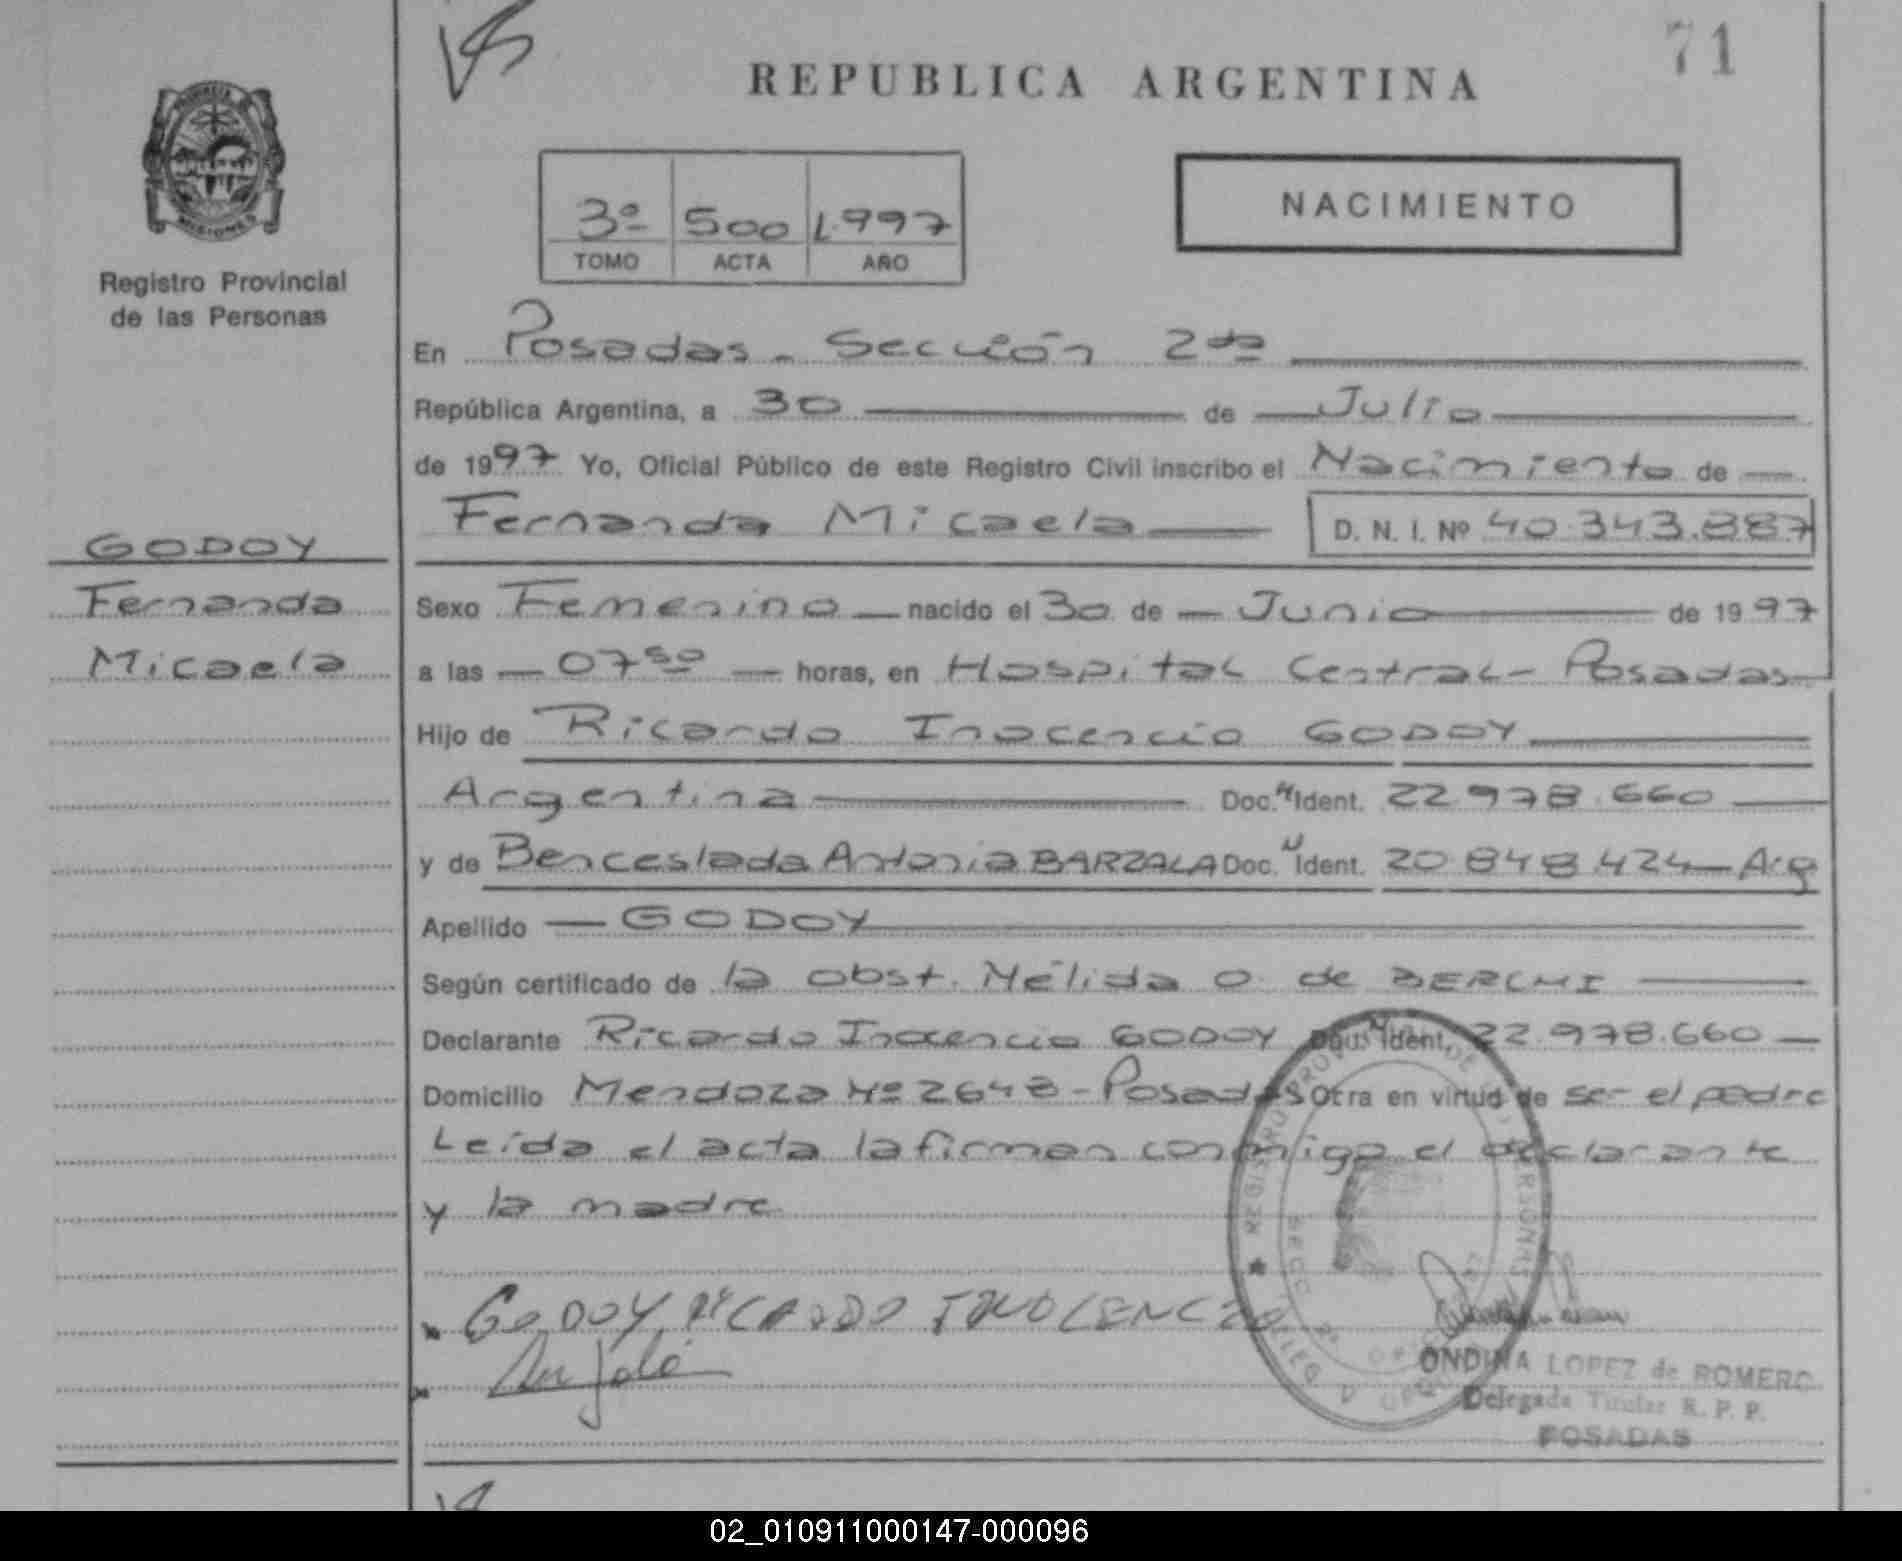 71
REPUBLICA ARGENTINA
PROVINCIA DE
MISIONES
Registro Provincial
de las Personas
3º 500 1.997
TOMO ACTA AÑO
NACIMIENTO
En Posadas - Sección 2da
República Argentina, a 30 de Julio
de 1997 Yo, Oficial Público de este Registro Civil inscribo el Nacimiento de
Fernanda Micaela D. N. I. Nº 40.343.887
GODOY
Fernanda
Micaela
Sexo Femenino nacido el 30 de Junio de 1997
a las 07 50 horas, en Hospital Central - Posadas
Hijo de Ricardo Inocencio GODOY
Argentina Doc. Ident. 22.978.660
y de Benceslada Antonia BARZALA Doc. Ident. 20.848.424 - Arg
Apellido GODOY
Según certificado de la obst. Nélida O. de BERCHI
Declarante Ricardo Inocencio GODOY Doc. Ident. 22.978.660
Domicilio Mendoza Nº 2648 - Posadas Otra en virtud de ser el padre
Leída el acta la firman conmigo el declarante
y la madre
GODOY RICARDO INOCENCIO
ONDINA LOPEZ de ROMERO
Delegada Titular R. P. P.
POSADAS
02_010911000147-000096